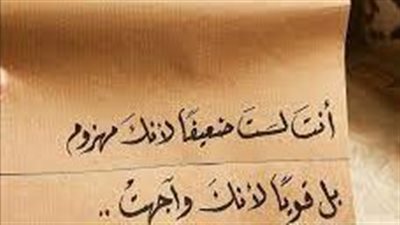 أنتَ لستَ ضعيفًا لأنكَ مهزوم
بل قويًا لأنكَ وآجهتْ ..